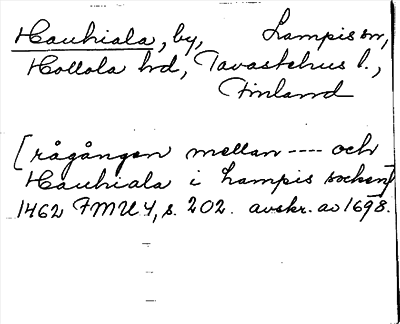 Hauhiala, by, Lampis sn,
Hollola hd, Tavastehus l.,
Finland
[rågången mellan ---- och
Hauhiala i Lampis socken]
1462 FMU 4, s. 202. avskr. av 1698.